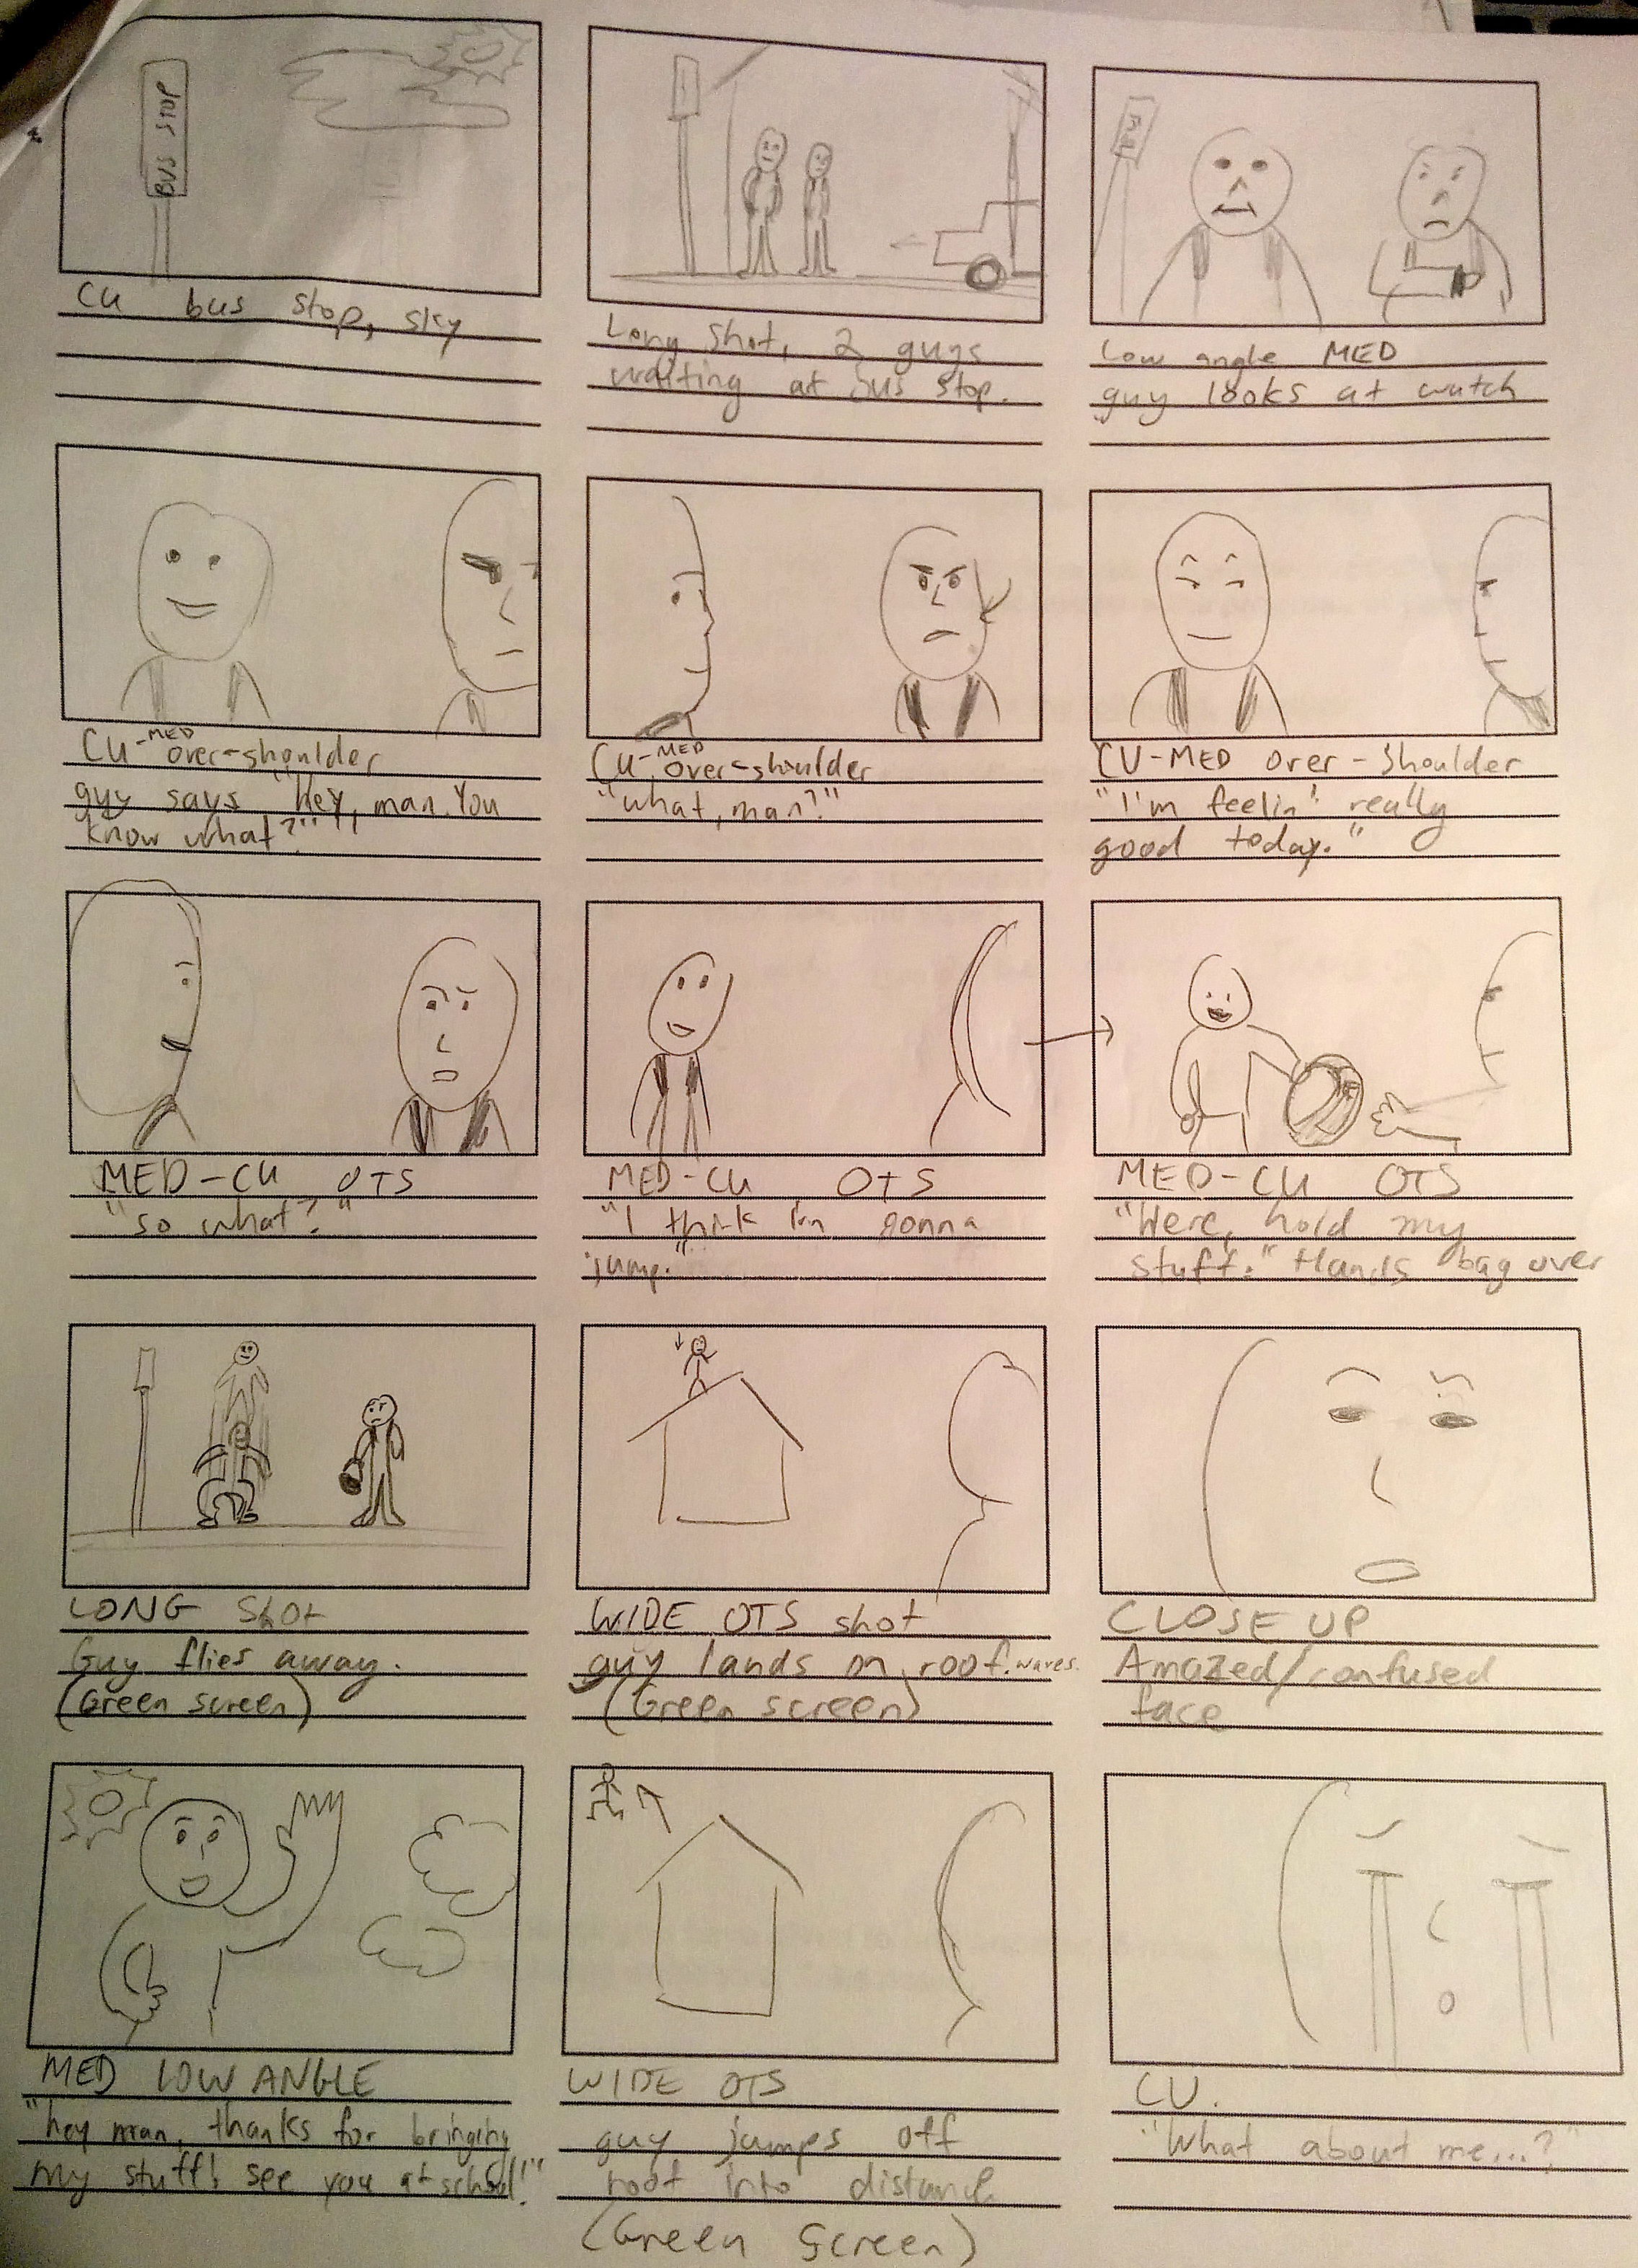 BUS STOP
CU bus stop, sky
Long shot, 2 guys
waiting at bus stop.
Low angle MED
guy looks at watch
CU-MED over-shoulder
guy says "Hey, man. You
know what?"
CU-MED over-shoulder
"what, man?"
CU-MED over-shoulder
"I'm feelin' really
good today."
MED-CU OTS
"so what?"
MED-CU OTS
"I think I'm gonna
jump."
MED-CU OTS
"Here, hold my
stuff." Hands bag over
LONG Shot
Guy flies away.
(Green screen)
WIDE OTS shot
guy lands on roof. waves.
(Green screen)
CLOSE UP
Amazed/confused
face
MED LOW ANGLE
"hey man, thanks for bringing
my stuff! see you at school!"
WIDE OTS
guy jumps off
roof into distance
(Green Screen)
CU.
"What about me...?"